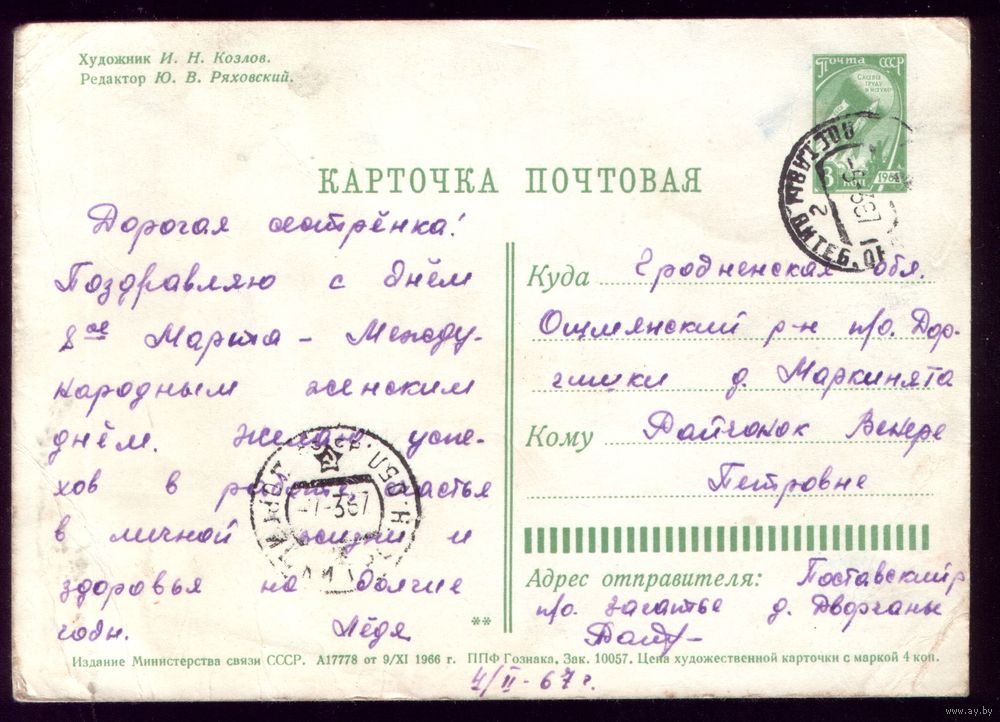 Художник И. Н. Козлов.
Редактор Ю. В. Ряховский.
Почта СССР
СЛАВА
ТРУДУ
И НАУКЕ
3 коп
1961
ПОСТАВЫ ВИТЕБ. ОБЛ
2
КАРТОЧКА ПОЧТОВАЯ
Дорогая сестрёнка!
Поздравляю с днём
8ое Марта – Между-
народным женским
днём. Желаю успе-
хов в работе, счастья
в личной жизни и
здоровья на долгие
годы. Лёдя
**
-7-367
Куда Гродненская обл.
Ошмянский р-н п/о. Дор-
гишки д. Маркинята
Кому Венере
Петровне
Адрес отправителя: Поставский р
п/о. Загатье д. Дворчаны
Издание Министерства связи СССР. А17778 от 9/XI 1966 г. ППФ Гознака, Зак. 10057. Цена художественной карточки с маркой 4 коп.
4/II-67г.
www.ay.by